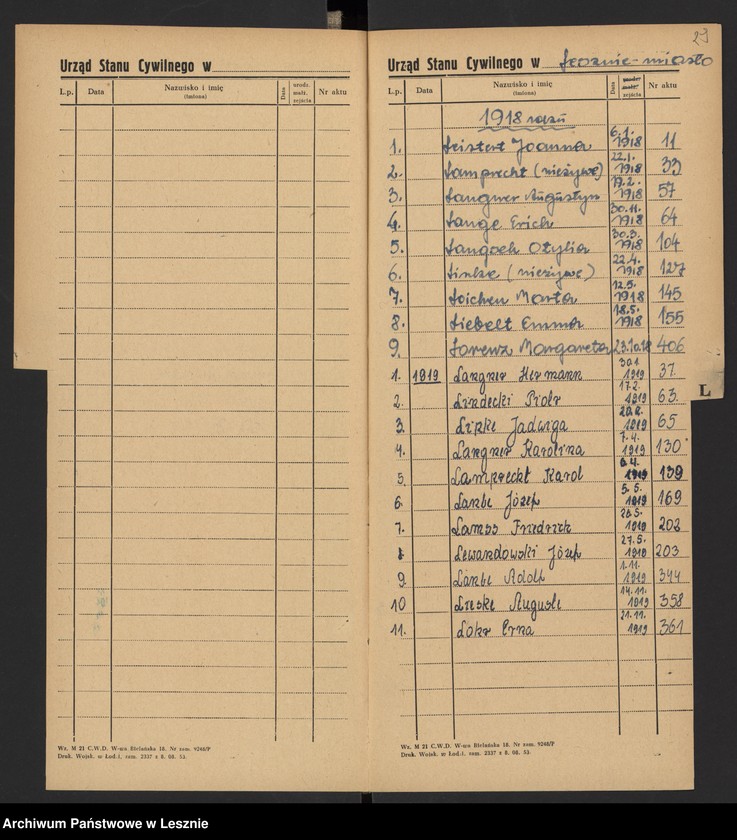 Urząd Stanu Cywilnego w
L.p. Data Nazwisko i imię (imiona) Data urodz. małż. zejścia Nr aktu
Wz. M 21 C.W.D. W-wa Bielańska 18. Nr zam. 9268/P
Druk. Wojsk. w Łodzi, zam. 2337 z 8. 08. 53.
29
Urząd Stanu Cywilnego w Lesznie-miasto
L.p. Data Nazwisko i imię (imiona) Data zejścia Nr aktu
1918 roku
1. Leistert Joanna 6.1. 1918 11
2. Lamprecht (nieżywe) 22.1. 1918 33
3. Langner Augustyn 19.2. 1918 57
4. Lange Erich 30.11. 1918 64
5. Langosch Otylia 30.3. 1918 104
6. Linke (nieżywe) 22.4. 1918 127
7. Loichen Marta 12.5. 1918 145
8. Liebelt Emma 18.5. 1918 155
9. Lorenz Margareta 23.10.18 406
1. 1919 Langner Hermann 30.1 1919 37
2. Lindecki Piotr 17.2. 1919 63
3. Lipke Jadwiga 20.2. 1919 65
4. Langner Karolina 7.4. 1919 130
5. Lamprecht Karol 1919 139
6. Laube Józef 5.5. 1919 169
7. Friedrick 1919 202
Lewandowski Józef 27.5. 1919 203
9. Laube Adolf 1.11. 1919 344
10 Lieske August 14.11. 1919 358
11. Loke Erna 21.11. 1919 361
L
Archiwum Państwowe w Lesznie